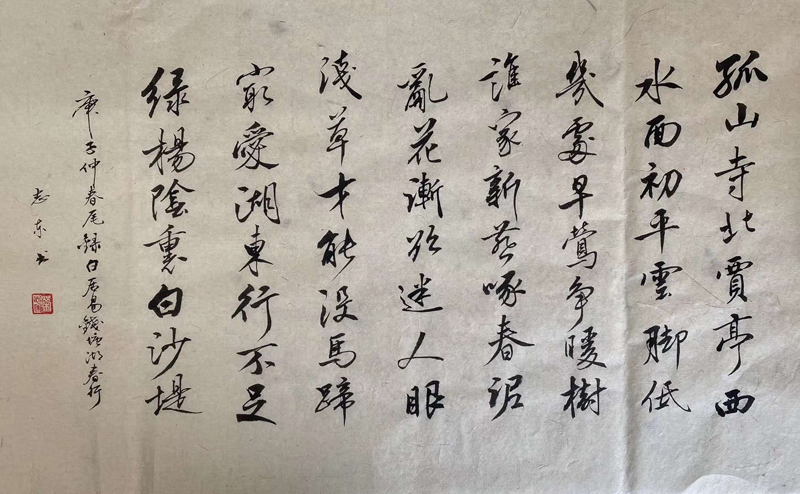 孤山寺北賈亭西
水面初平雲脚低
幾處早鶯争暖樹
誰家新燕啄春泥
亂花漸欲迷人眼
淺草才能没馬蹄
最愛湖東行不足
绿楊陰裏白沙堤
庚子仲春尾録白居易錢塘湖春行
志东书